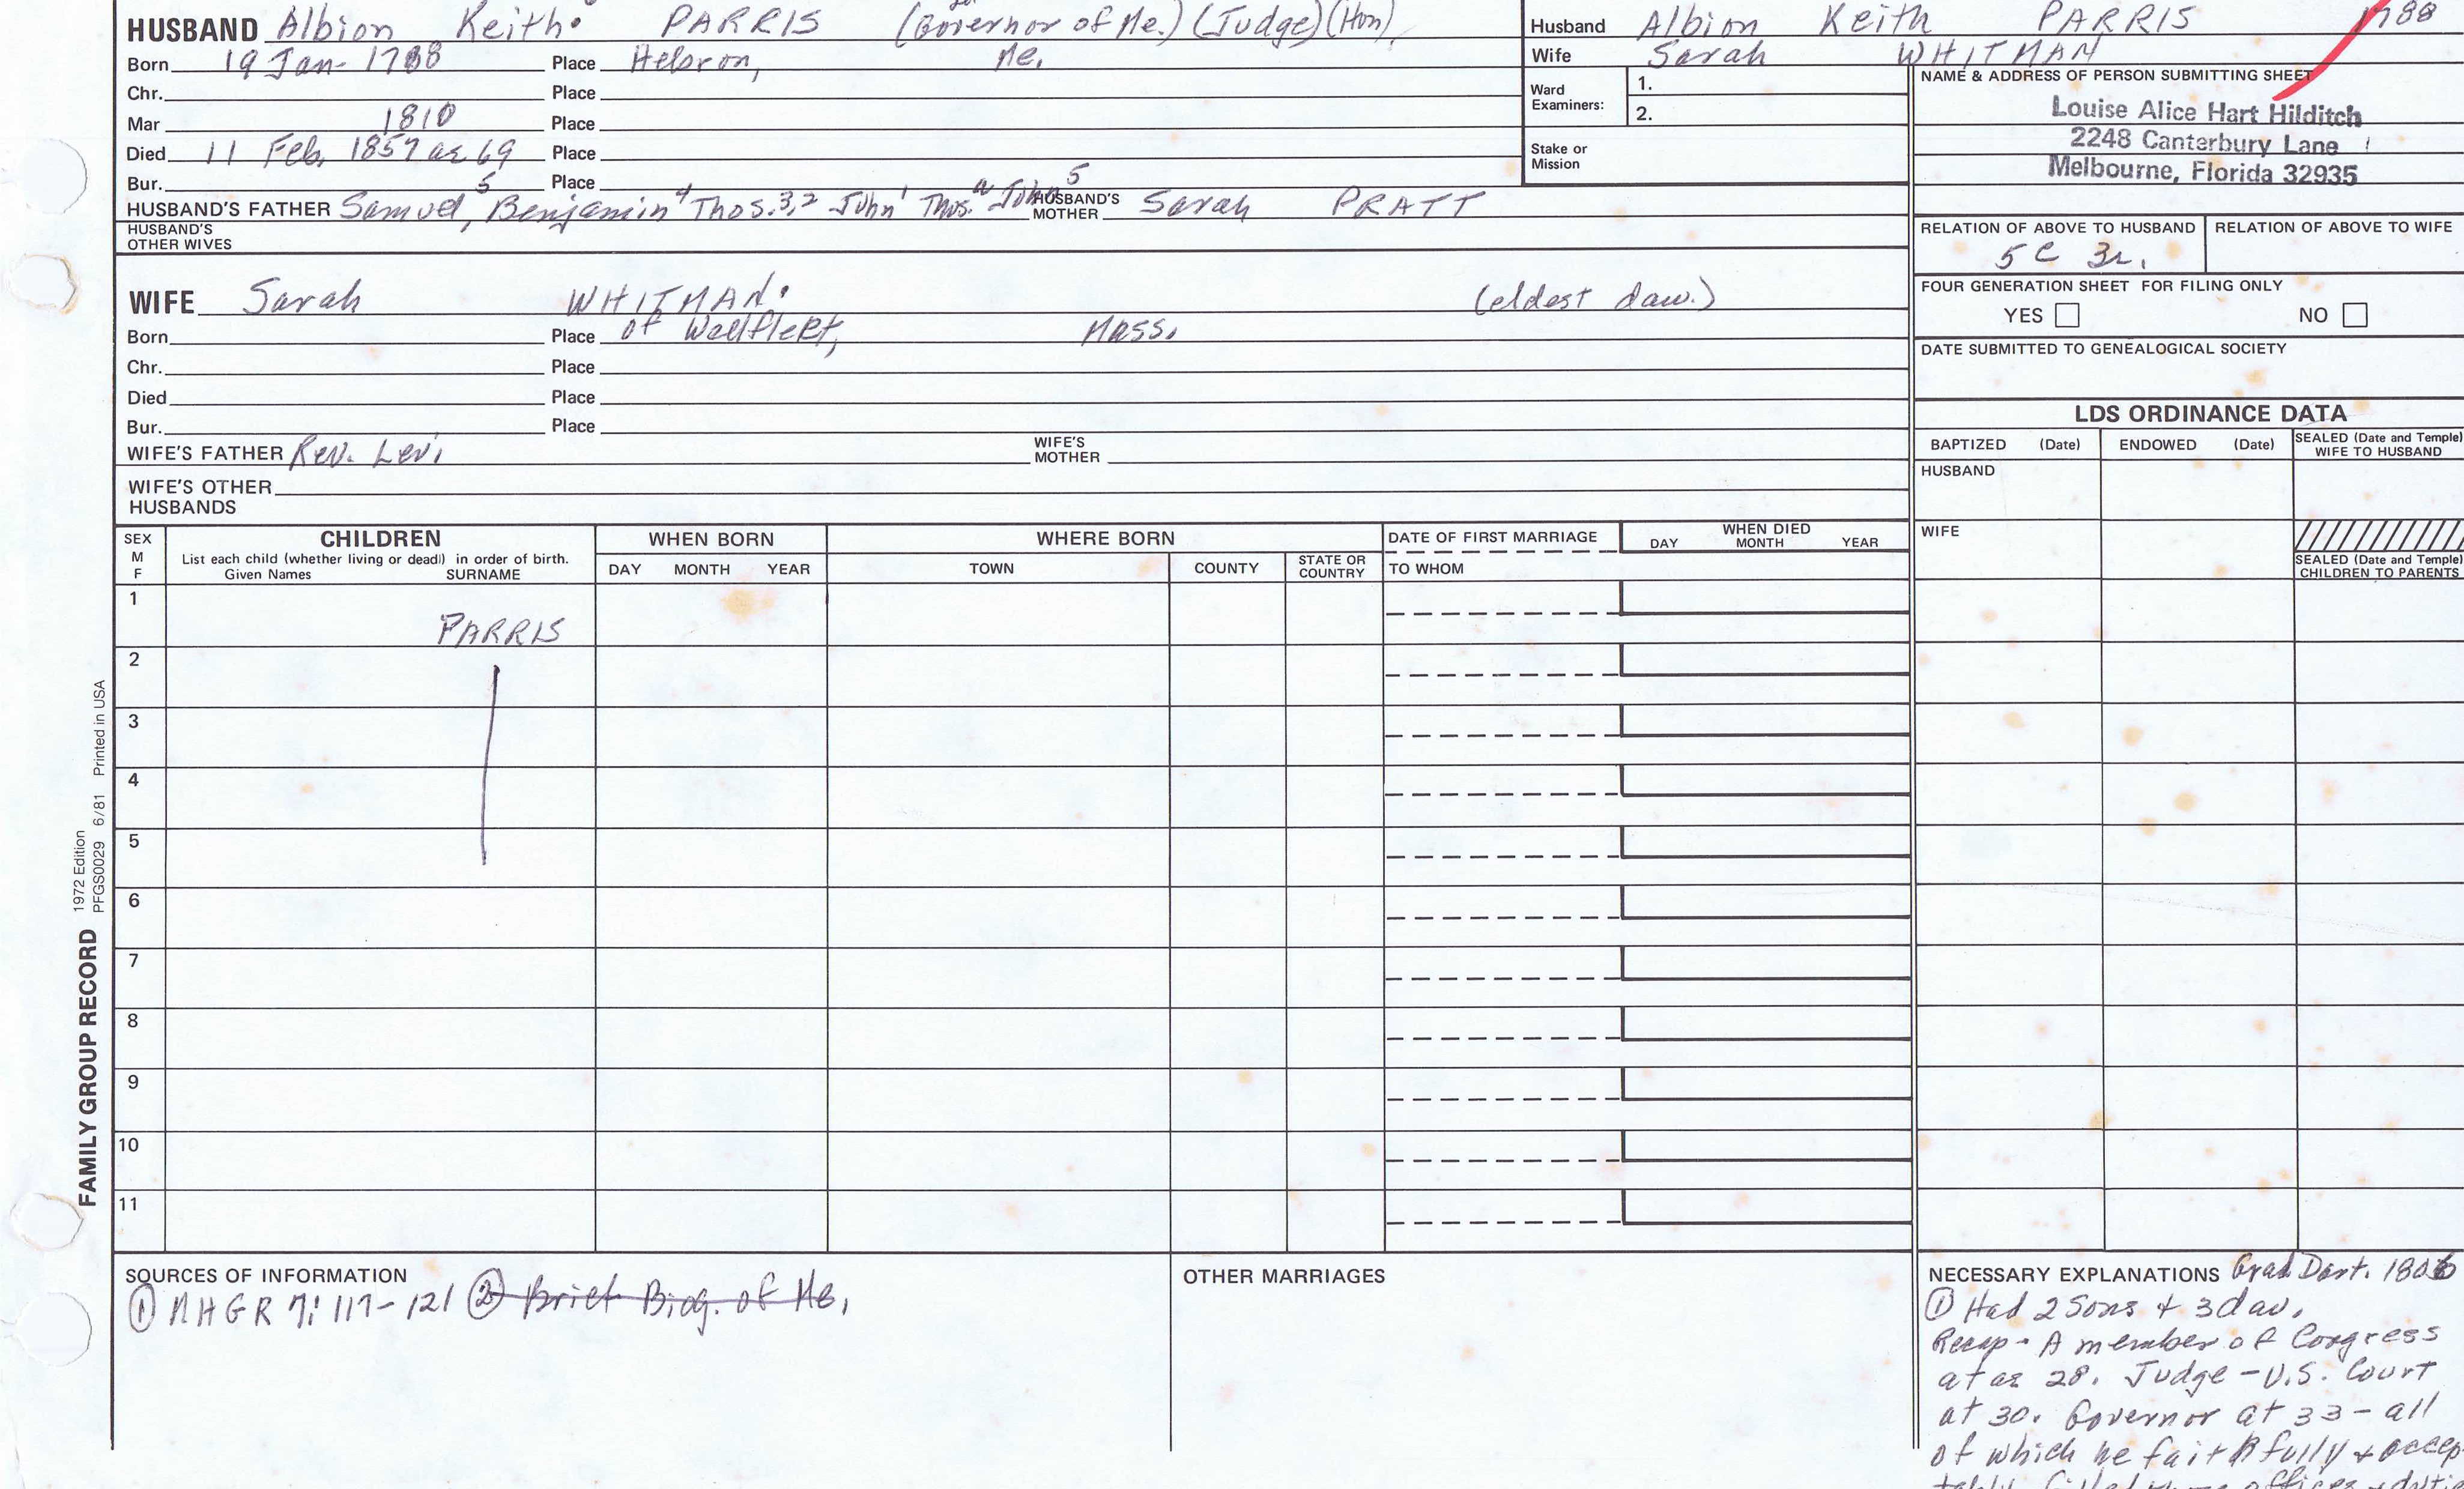 HUSBAND Albion Keith PARRIS (Governor of Me.) (Judge) (Hon)
Born 19 Jan- 1788 Place Hebron, Me.
Chr. Place
Mar 1810 Place
Died 11 Feb, 1857 ae 69 Place
Bur. Place
HUSBAND'S FATHER Samuel,5 Benjamin4 Thos.3,2 John1 Thos.a John HUSBAND'S MOTHER Sarah5 PRATT
HUSBAND'S
OTHER WIVES
WIFE Sarah WHITMAN (eldest daw.)
Born Place of Wellfleet, Mass.
Chr. Place
Died Place
Bur. Place
WIFE'S FATHER Rev. Levi WIFE'S MOTHER
WIFE'S OTHER
HUSBANDS
Husband Albion Keith PARRIS 1788
Wife Sarah WHITMAN
Ward Examiners: 1.
2.
Stake or Mission
NAME & ADDRESS OF PERSON SUBMITTING SHEET
Louise Alice Hart Hilditch
2248 Canterbury Lane
Melbourne, Florida 32935
RELATION OF ABOVE TO HUSBAND RELATION OF ABOVE TO WIFE
5 C 3r.
FOUR GENERATION SHEET FOR FILING ONLY
YES NO
DATE SUBMITTED TO GENEALOGICAL SOCIETY
LDS ORDINANCE DATA
BAPTIZED (Date) ENDOWED (Date) SEALED (Date and Temple) WIFE TO HUSBAND
HUSBAND
WIFE
SEALED (Date and Temple)
CHILDREN TO PARENTS
SEX M F CHILDREN WHEN BORN WHERE BORN DATE OF FIRST MARRIAGE WHEN DIED
List each child (whether living or dead) in order of birth.
Given Names SURNAME DAY MONTH YEAR TOWN COUNTY STATE OR COUNTRY TO WHOM DAY MONTH YEAR
1
PARRIS
2
3
4
5
6
7
8
9
10
11
FAMILY GROUP RECORD 1972 Edition
PFGS0029 6/81 Printed in USA
SOURCES OF INFORMATION
① NHGR 7: 117-121 ② Brief Biog. of Me.
OTHER MARRIAGES
NECESSARY EXPLANATIONS Grad. Dart. 1806
① Had 2 Sons + 3 daw.
Recap - A member of Congress
at ae 28. Judge - U.S. Court
at 30. Governor at 33 - all
of which he faithfully + accep